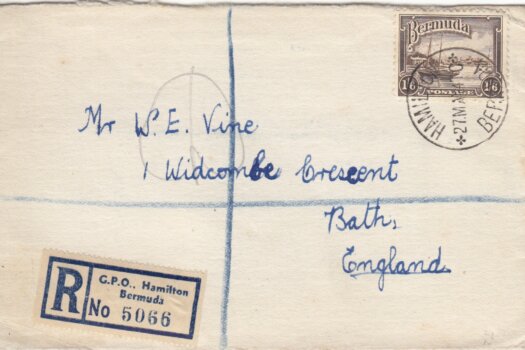 Bermuda
1/6 POSTAGE 1/6
HAMILTON
*27MA
BERMUDA
Mr W. E. Vine
1 Widcombe Crescent
Bath,
England.
R
G.P.O., Hamilton
Bermuda
No 5066